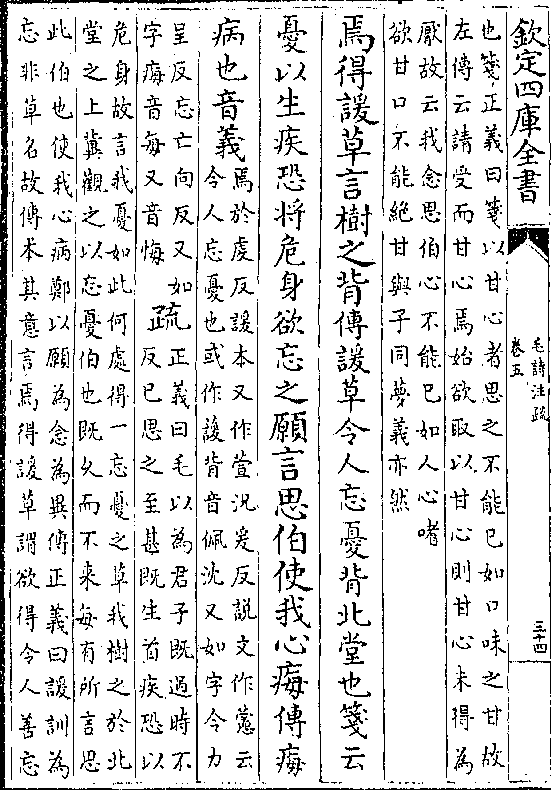 欽定四庫全書
毛詩注疏
卷五
三十四
也箋正義曰箋以甘心者思之不能已如口味之甘故
左傳云請受而甘心焉始欲取以甘心則甘心未得為
厭故云我念思伯心不能已如人心嗜
欲甘口不能絶甘與子同夢義亦然
焉得諼草言樹之背傳諼草令人忘憂背北堂也箋云
憂以生疾恐将危身欲忘之願言思伯使我心痗傳痗
病也音義
焉於虔反諼本又作萱況爰反說文作藼云
令人忘憂也或作蕿背音佩沈又如字令力
呈反忘亡向反又如
字痗音每又音悔
疏
正義曰毛以為君子既過時不
反已思之至甚既生首疾恐以
危身故言我憂如此何處得一忘憂之草我樹之於北
堂之上冀觀之以忘憂伯也既久而不来每有所言思
此伯也使我心病鄭以願為念為異傳正義曰諼訓為
忘非草名故傳本其意言焉得諼草謂欲得令人善忘